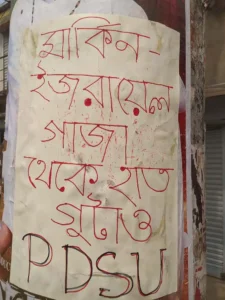 মার্কিন-
ইজরায়েল
গাজা
থেকে হাত
গুটাও
PDSU